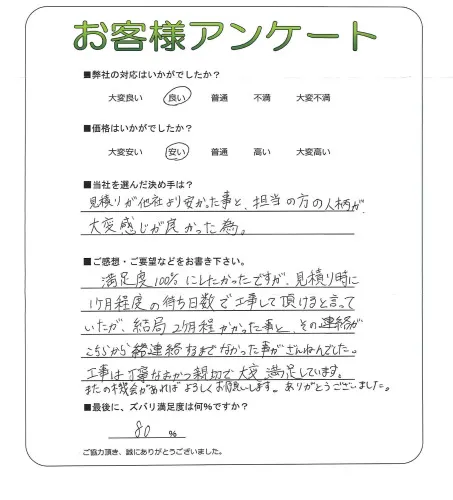 お客様アンケート
■弊社の対応はいかがでしたか？
大変良い 良い 普通 不満 大変不満
■価格はいかがでしたか？
大変安い 安い 普通 高い 大変高い
■当社を選んだ決め手は？
見積りが他社より安かった事と、担当の方の人柄が、
大変感じが良かった為。
■ご感想・ご要望などをお書き下さい。
満足度100％にしたかったですが、見積り時に
1ケ月程度の待ち日数で工事して頂けると言って
いたが、結局2ケ月程かかった事と、その連絡が
こちらから連絡するまでなかった事がざんねんでした。
工事は丁寧なおかつ親切で大変満足しています。
またの機会があればよろしくお願いします。ありがとうございました。
■最後に、ズバリ満足度は何％ですか？
80 ％
ご協力頂き、誠にありがとうございました。